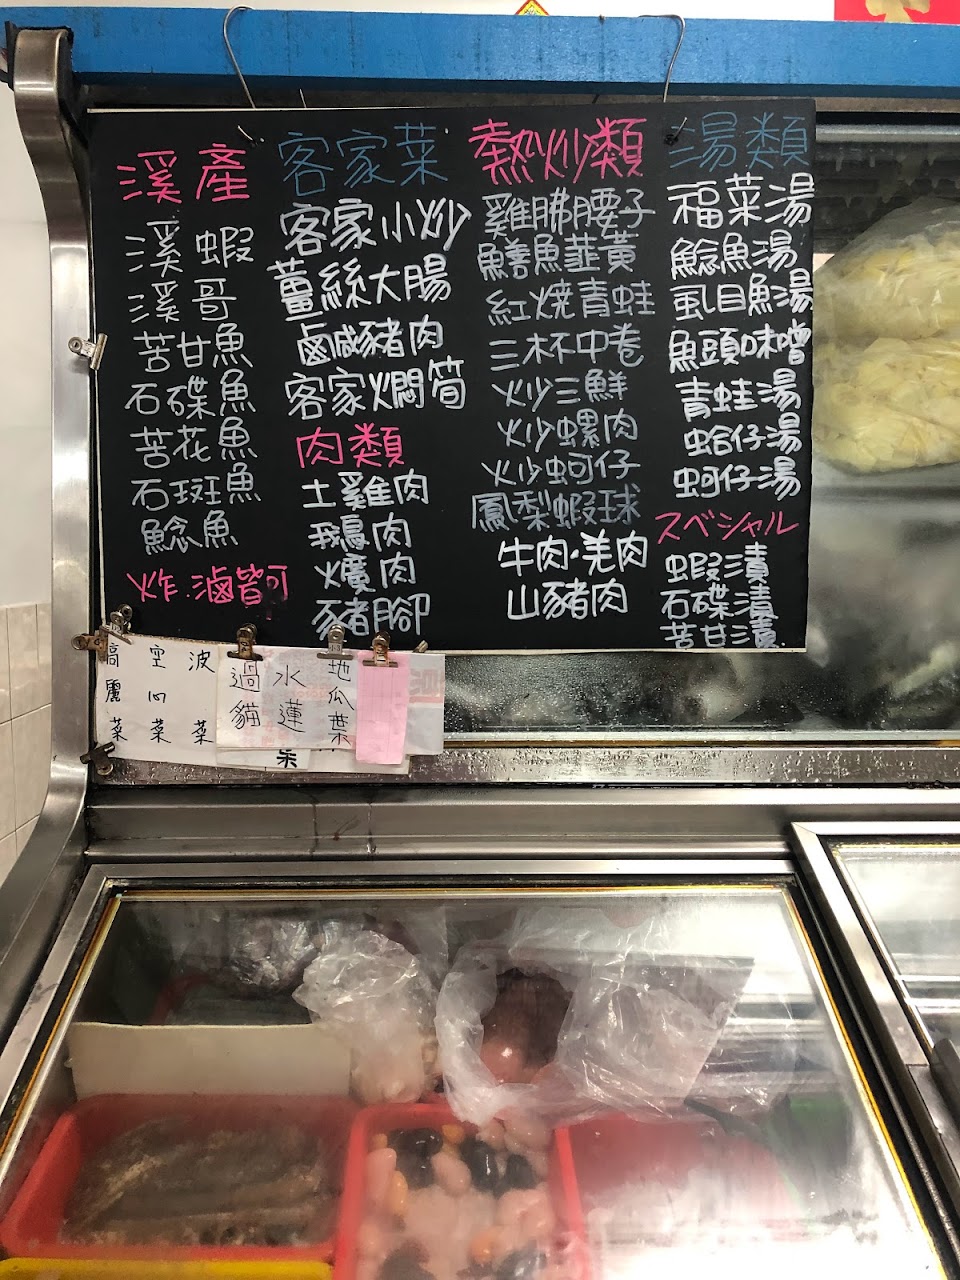 溪產
溪蝦
溪哥
苦甘魚
石碟魚
苦花魚
石斑魚
鯰魚
炸.滷皆可
客家菜
客家小炒
薑絲大腸
鹵鹹豬肉
客家燜筍
肉類
土雞肉
鵝肉
爌肉
豬腳
熱炒類
雞腓腰子
鱔魚韮黃
紅燒青蛙
三杯中卷
炒三鮮
炒螺肉
炒蚵仔
鳳梨蝦球
牛肉.羌肉
山豬肉
湯類
福菜湯
鯰魚湯
虱目魚湯
魚頭味噌
青蛙湯
蛤仔湯
蚵仔湯
スペシャル
蝦漬
石碟漬
苦甘漬
高麗菜
空心菜
波菜
過貓
水蓮
地瓜葉